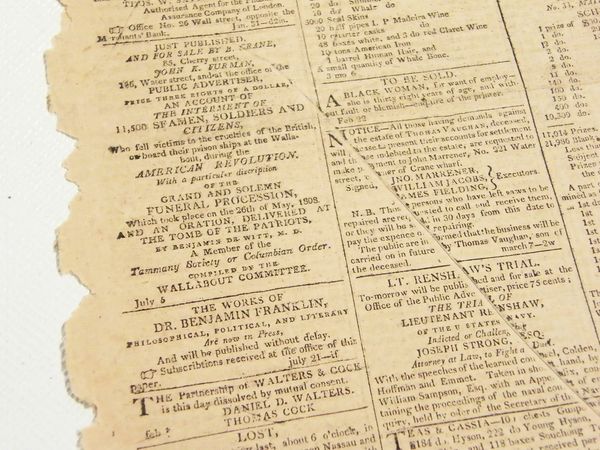 Authorised Agent for the
Assurance Company of London.
Office No. 26 Wall street, opposite the
Bank. jn. 21—d2m.
JUST PUBLISHED,
AND FOR SALE BY B. CRANE,
85, Cherry street,
JOHN K. FURMAN,
Water street, and at the office of the
PUBLIC ADVERTISER,
PRICE THREE EIGHTS OF A DOLLAR,
AN ACCOUNT OF
THE INTERMENT OF
11,500 SEAMEN, SOLDIERS AND
CITIZENS,
Who fell victims to the cruelties of the British,
on board their prison ships at the Walla-
bout, during the
AMERICAN REVOLUTION.
With a particular discription
OF THE
GRAND AND SOLEMN
FUNERAL PROCESSION,
Which took place on the 26th of May, 1808.
AND AN ORATION, DELIVERED AT
THE TOMB OF THE PATRIOTS,
BY BENJAMIN DE WITT, M. D.
A Member of the
Tammany Society or Columbian Order.
COMPILED BY THE
WALLABOUT COMMITTEE.
July 6
THE WORKS OF
DR. BENJAMIN FRANKLIN,
PHILOSOPHICAL, POLITICAL, AND LITERARY
Are now in Press,
And will be published without delay.
Subscriptions received at the office of this
paper. july 21—if
THE Partnership of WALTERS & COCK
is this day dissolved by mutual consent.
DANIEL D. WALTERS.
THOMAS COCK
feb
LOST,
last, about 6 o'clock, in
Nassau and
Whale do
Seal Skins
20 half pipes L P Madeira Wine
10 quarter casks do
48 boxes white, and 3 do red Claret Wine
10 tons American Iron
1 barrel Human Hair, and
A small quantity of Whale Bone.
3 mo 6
TO BE SOLD.
A BLACK WOMAN, for want of employ—
she is thirty eight years of age, and with-
out fault or blemish—enquire of the printer.
Feb 22
NOTICE.—All those having demands against
the estate of THOMAS VAUGHN, deceased,
will please present their accounts for settlement
indebted to the estate, are requested to
make payment to John Marrener, No. 221 Water
street, corner of Crane wharf.
Signed, JNO. MARRENER,
WILLIAM JACOBS, Executors.
JAMES FIELDING,
N. B. persons who have saws to be
repaired are requested to call and receive them,
or they will be in 30 days from this date to
pay the expence of repairing.
The public are informed that the business will be
carried on in future by Thomas Vaughan, son of
the deceased. march 7—2w
LT. RENSHAW'S TRIAL.
To-morrow will be published and for sale at the
Office of the Public Advertiser, price 75 cents;
THE TRIAL OF
LIEUTENANT RENSHAW,
OF THE U STATES NAVY,
Indicted for Challenging
JOSEPH STRONG, ESQ.
Attorney at Law, to Fight a
With the speeches of the learned counsel, Colden,
Hoffman and Emmet. Taken in short hand, by
William Sampson, Esq. with an Appendix, con-
taining the proceedings of the naval court of en-
quiry, held by order of the Secretary of the
TEAS & CASSIA—10 chests Gunp.
184 do. Hyson, 220 do. Young Hyson
and 118 boxes Souchong
No. 31,
SCH
1 prize of
do.
do.
do.
10,380
11,014 Prizes,
21,980 Blanks,
Subject
Prizes
the
A part
mined as
1st
1st
1st